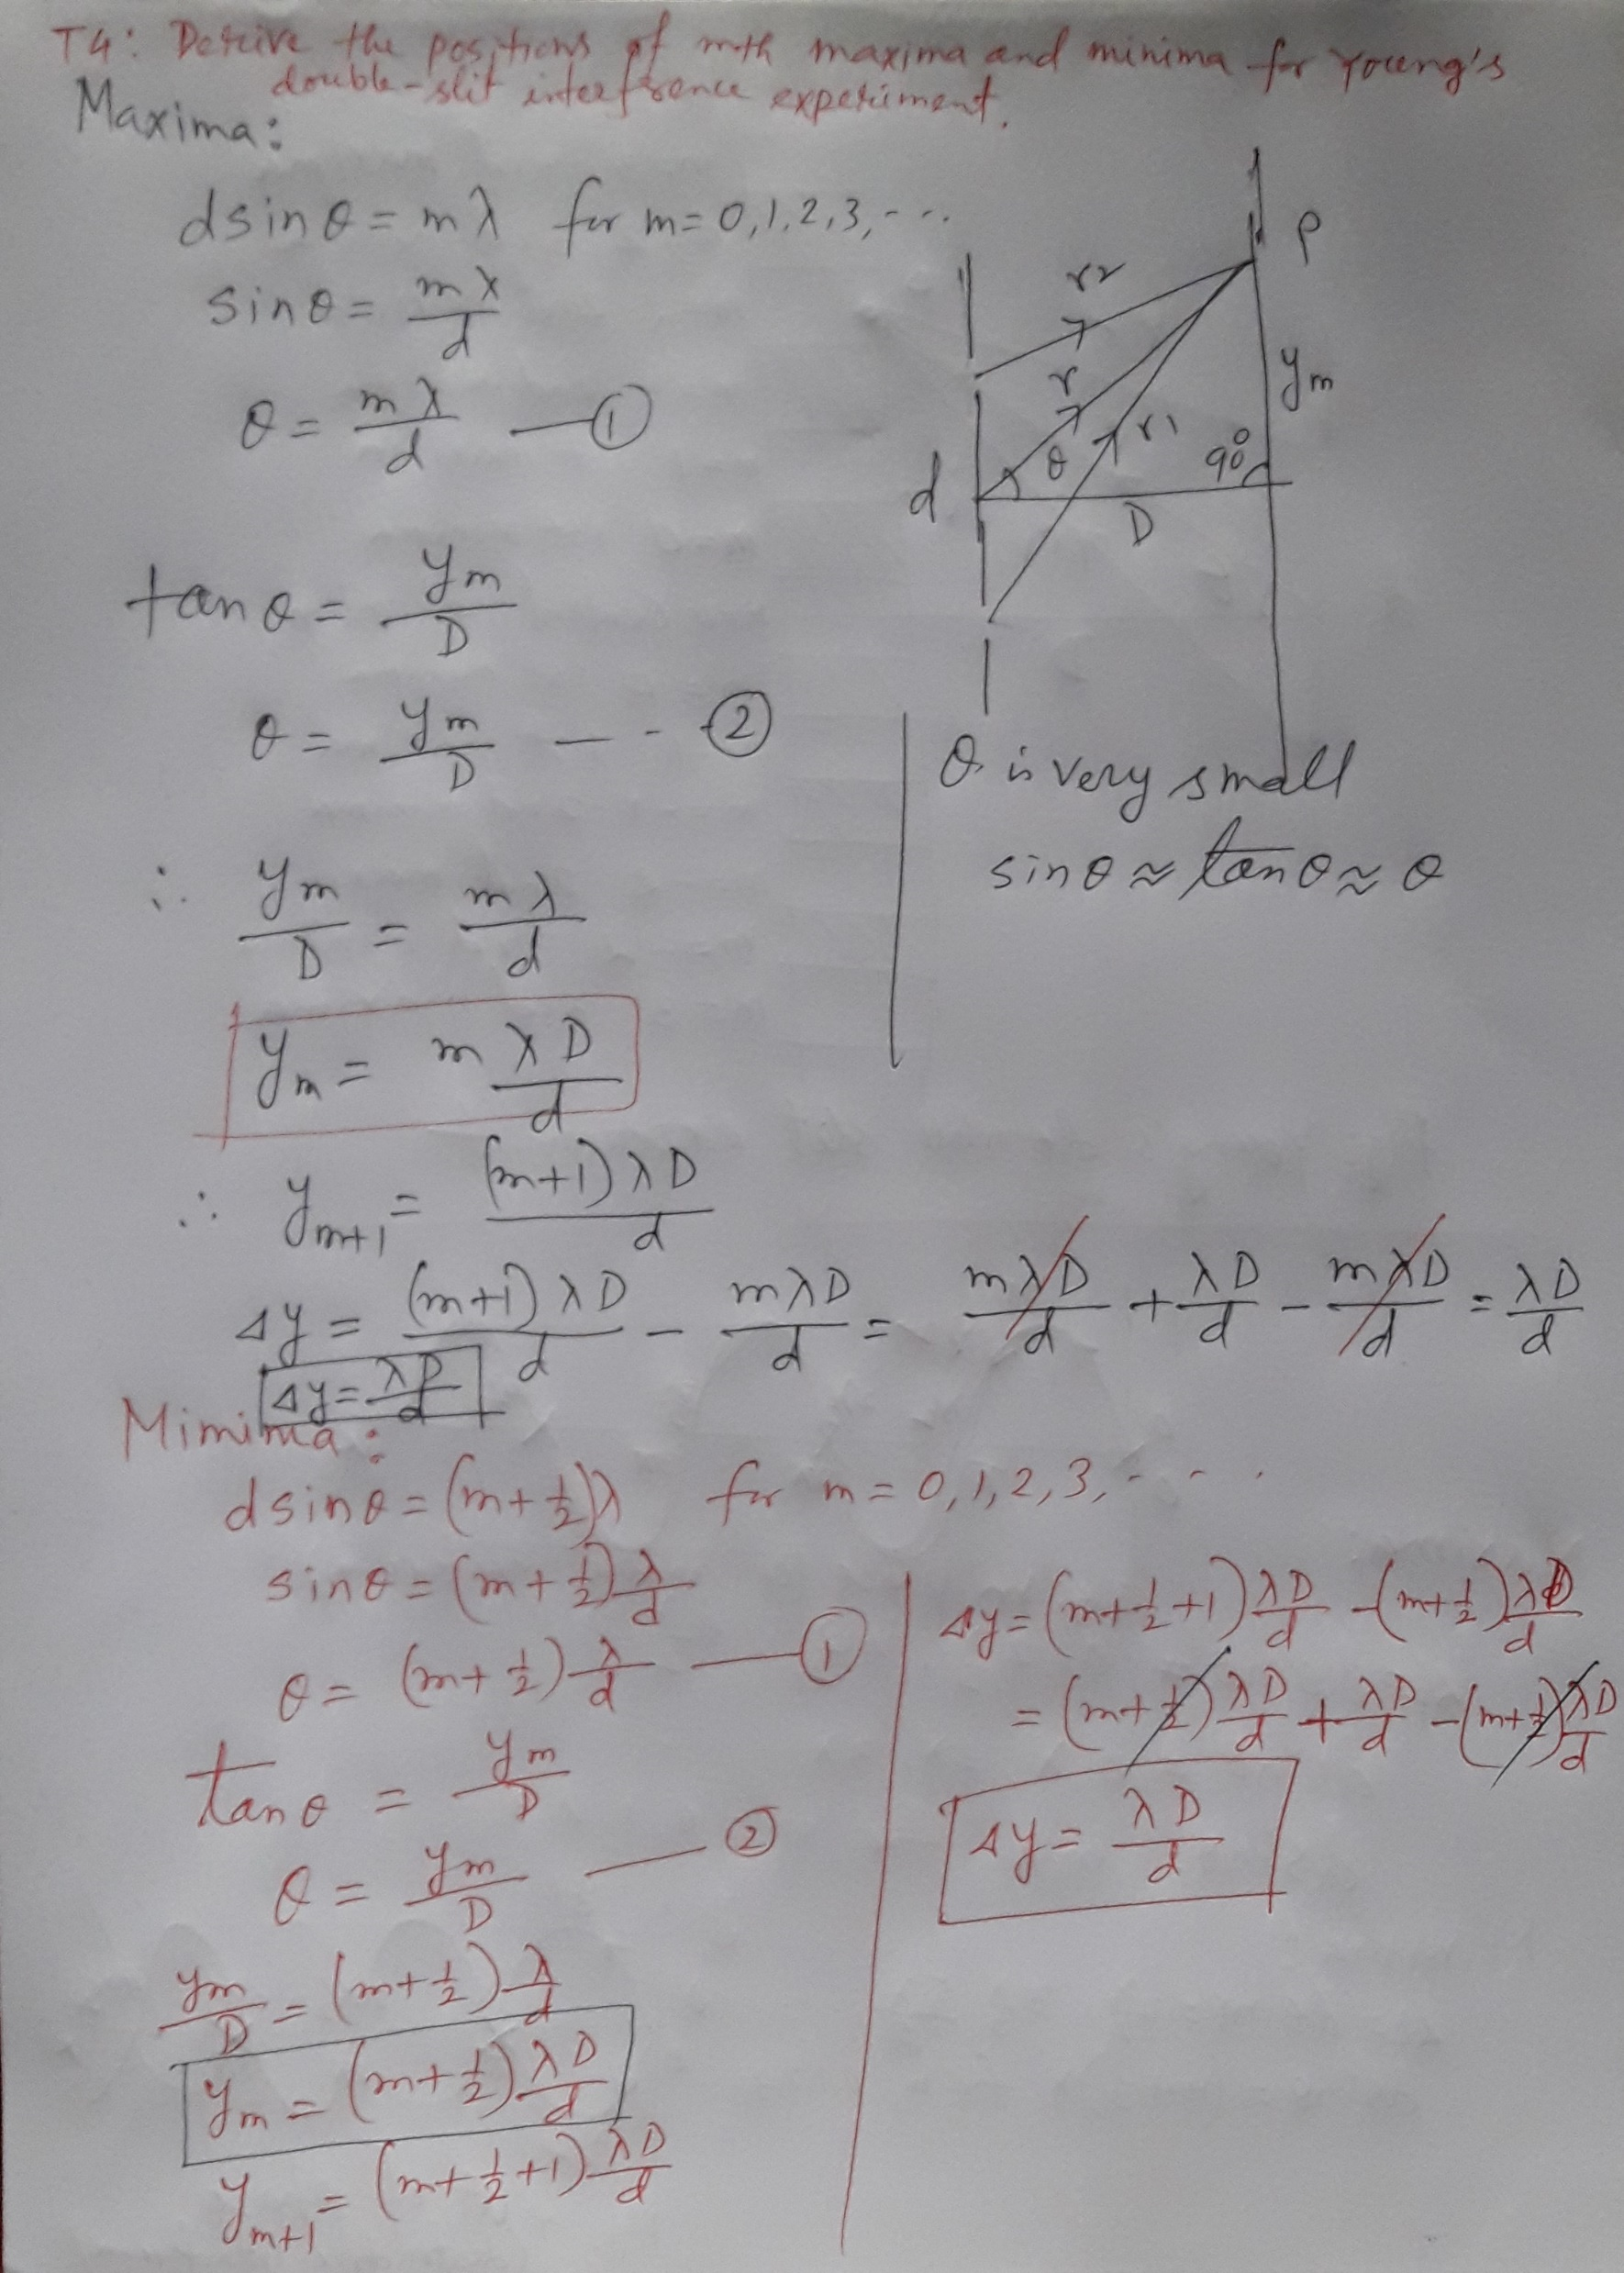 T4: Derive the positions of mth maxima and minima for Young's
double-slit interference experiment.
Maxima:
dsinθ = mλ for m = 0,1,2,3,- - -
sinθ = mλ/d
θ = mλ/d —①
P
r2
r
r1
θ
90°
d
D
ym
tanθ = ym/D
θ = ym/D — - - ②
θ is very small
sinθ ≈ tanθ ≈ θ
∴ ym/D = mλ/d
ym = mλD/d
∴ ym+1 = (m+1)λD/d
Δy = (m+1)λD/d - mλD/d = mλD/d + λD/d - mλD/d = λD/d
Δy = λD/d
Mimima:
dsinθ = (m+1/2)λ for m = 0,1,2,3,- - -
sinθ = (m+1/2)λ/d
θ = (m+1/2)λ/d —①
tanθ = ym/D
θ = ym/D —②
ym/D = (m+1/2)λ/d
ym = (m+1/2)λD/d
ym+1 = (m+1/2+1)λD/d
Δy = (m+1/2+1)λD/d - (m+1/2)λD/d
= (m+1/2)λD/d + λD/d - (m+1/2)λD/d
Δy = λD/d